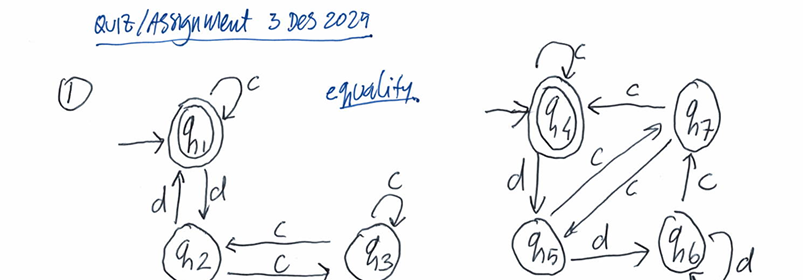 QUIZ/Assignment 3 Des 2029
1
equality.
c
q1
d
d
q2
c
c
q3
c
c
q4
c
q7
d
c
c
q5
d
q6
c
d